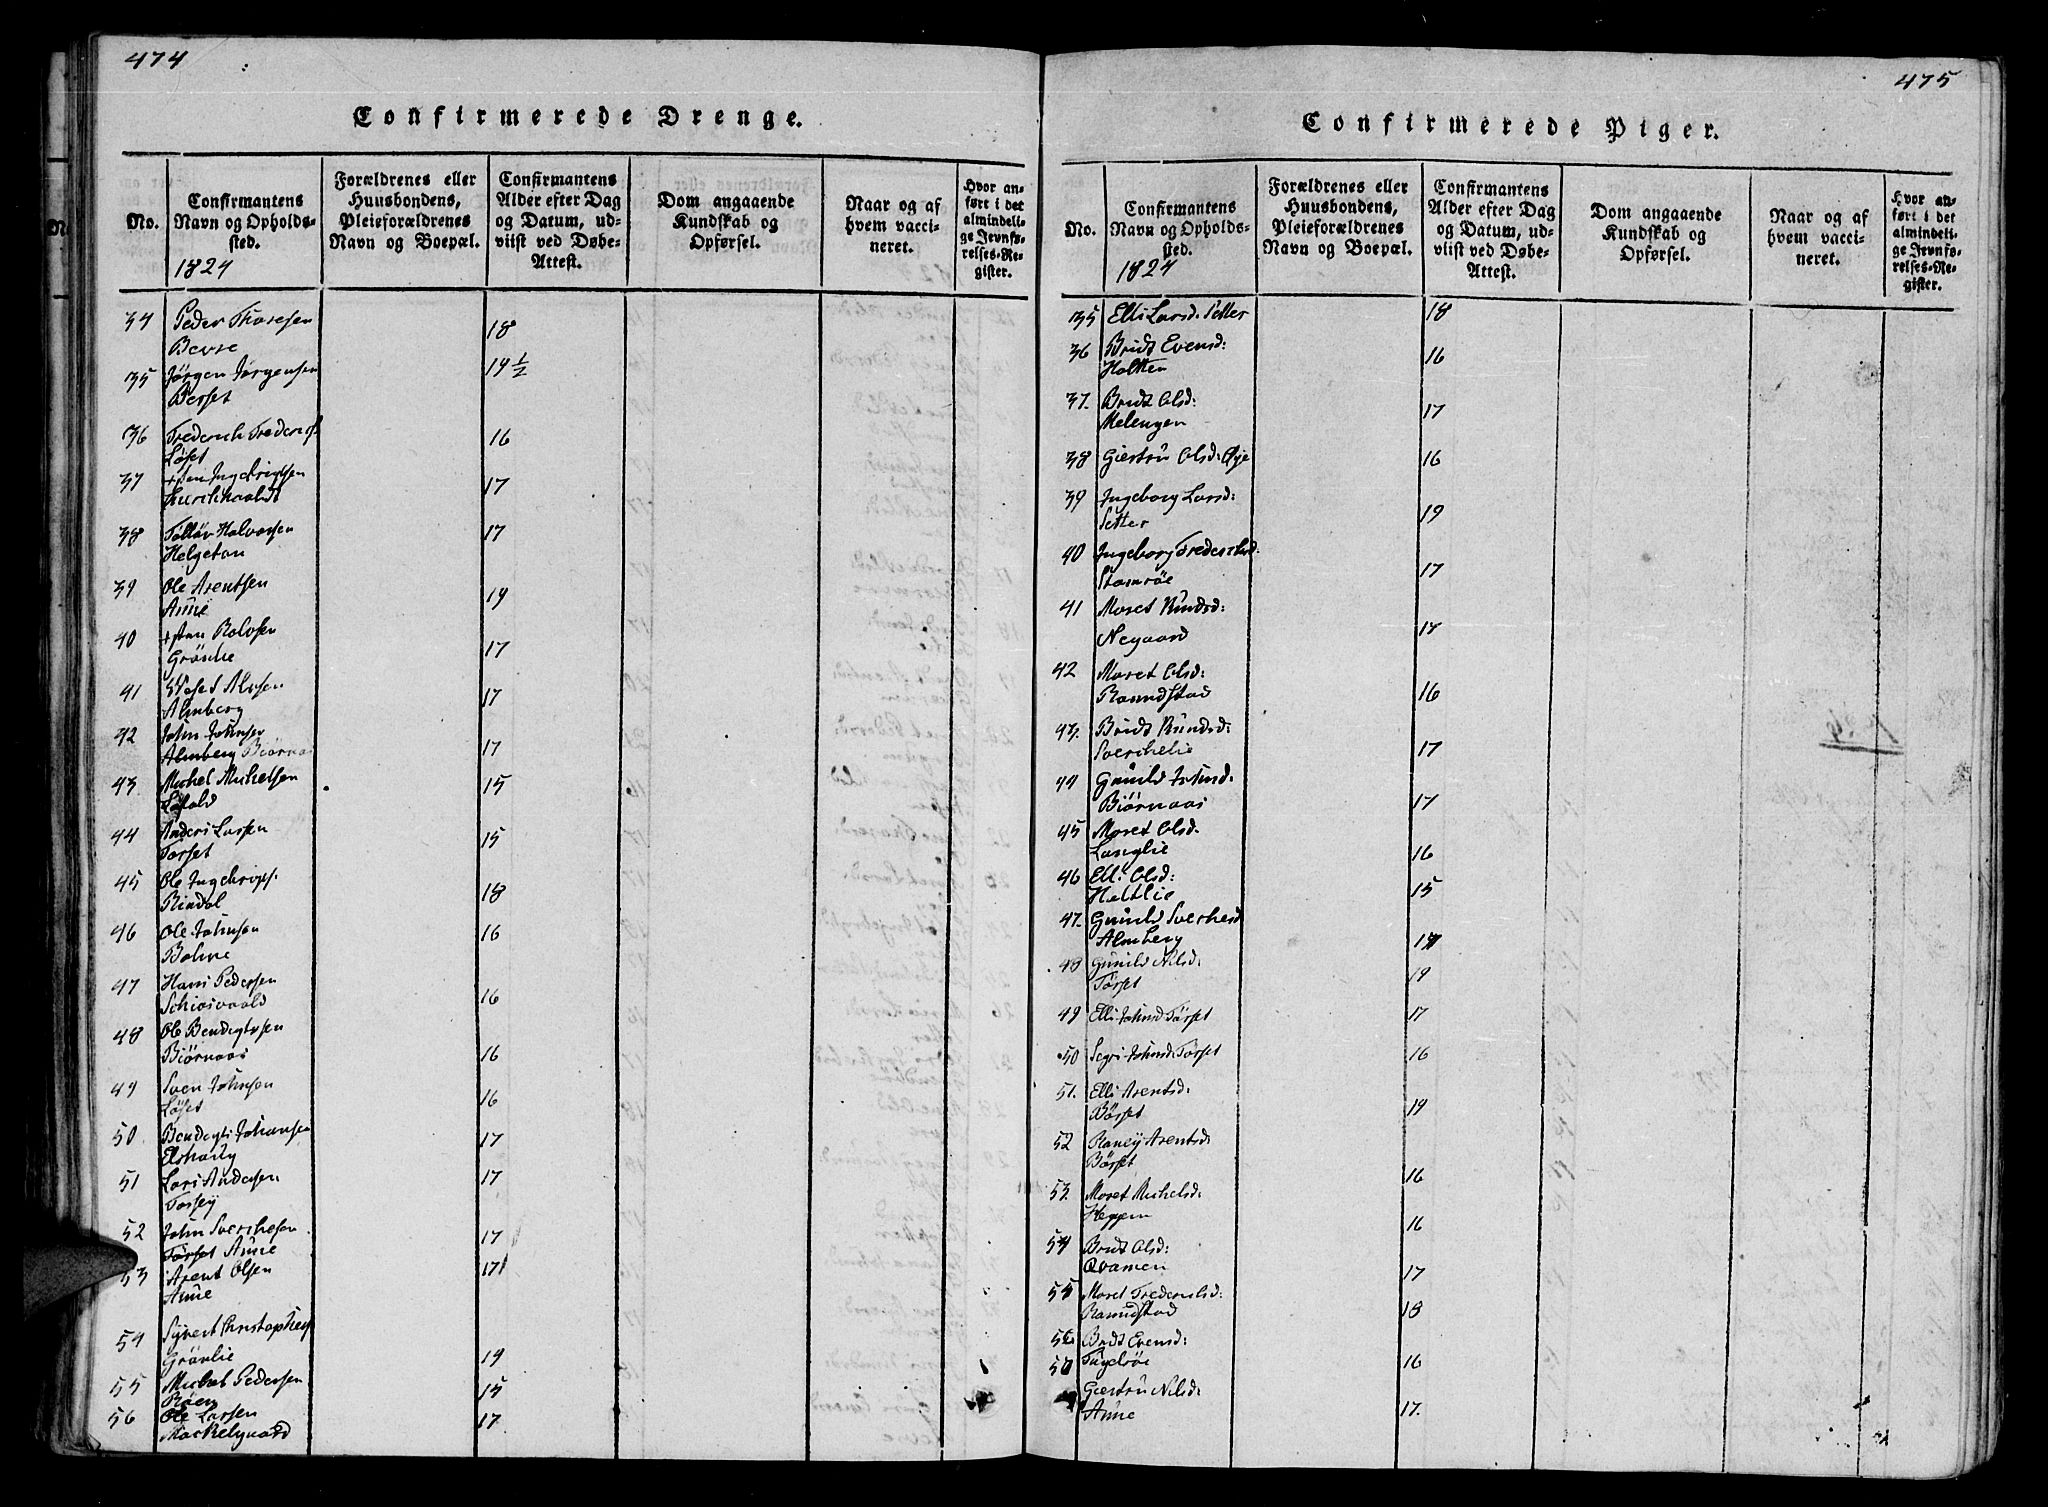 474
Confirmerede Drenge.
No.
Confirmantens Navn og Opholds-sted.
Forældrenes eller Huusbondens, Pleieforældrenes Navn og Boepæl.
Confirmantens Alder efter Dag og Datum, ud-viist ved Døbe-Attest.
Dom angaaende Kundskab og Opførsel.
Naar og af hvem vacci-neret.
Hvor an-ført i det almindeli-ge Jevnfø-relses-Re-gister.
1824
34 Peder Thoresen 18
Bevre
35 Jørgen Jørgensen 14 1/2
Berset
36 Frederich Fredericks 16
Løset
37 Ingebrigtsen 17
38 Halvorsen 17
Helgetun
39 Ole Arentsen 19
Aune
40 Rolvsen 17
Grönlie
41 Alvsen 17
Almberg
42 John Johnsen 17
Almberg Biörnaas
43 Michel Michelsen 15
44 Anders Larsen 15
Torset
45 Ole Ingebrigts. 18
Rindal
46 Ole Johnsen 16
Bolme
47 Hans Pedersen 16
48 Ole Bendigtsen 16
Biörnaas
49 Sven Johnsen 16
Löset
50 Bendigt Johansen 17
51 Lars Andersen 17
52 John Sverchesen 17
Törset Aune
53 Arent Olsen 17
Aune
54 Syvert Christophers 19
Grönlie
55 Michel Pedersen 15
Röen
56 Ole Larsen 17
475
Confirmerede Piger.
No.
Confirmantens Navn og Opholds-sted.
Forældrenes eller Huusbondens, Pleieforældrenes Navn og Boepæl.
Confirmantens Alder efter Dag og Datum, ud-viist ved Døbe-Attest.
Dom angaaende Kundskab og Opførsel.
Naar og af hvem vacci-neret.
Hvor an-ført i det almindeli-ge Jevnfø-relses-Re-gister.
1824
35 Elli Larsd: Setter 18
36 Bridt Evensd: 16
Holten
37. Bridt Olsd: 17
Melengen
38 Giertru Olsd: Øye 16
39 Ingeborg Larsd: 19
Setter
40 Ingeborg Frederiksd: 17
41 Moret Knudsd:
Negaard
42 Moret Olsd: 16
Romundstad
43. Bridt Knudsd: 17
Sverchelie
44 Gunild Johnsd: 17
Biörnaas
45 Moret Olsd. 16
Langlie
46 Elli Olsd: 15
Heltlie
47. Gunild Sverchesd
Almberg
48 Gunild Nilsd: 19
Törset
49 Elli Johnsd Törset 17
50 Segri Johnsd: Törset 16
51. Elli Arentsd: 19
Börset
52 Raney Arentsd: 16
Börset
53. Moret Michelsd: 16
Heggem
54 Bridt Olsd: 17
Qvamen
55 Moret Frederiksd: 18
Romundstad
56 Bridt Evensd: 16
Fugelsöe
Giertru Nilsd: 17.
Aune